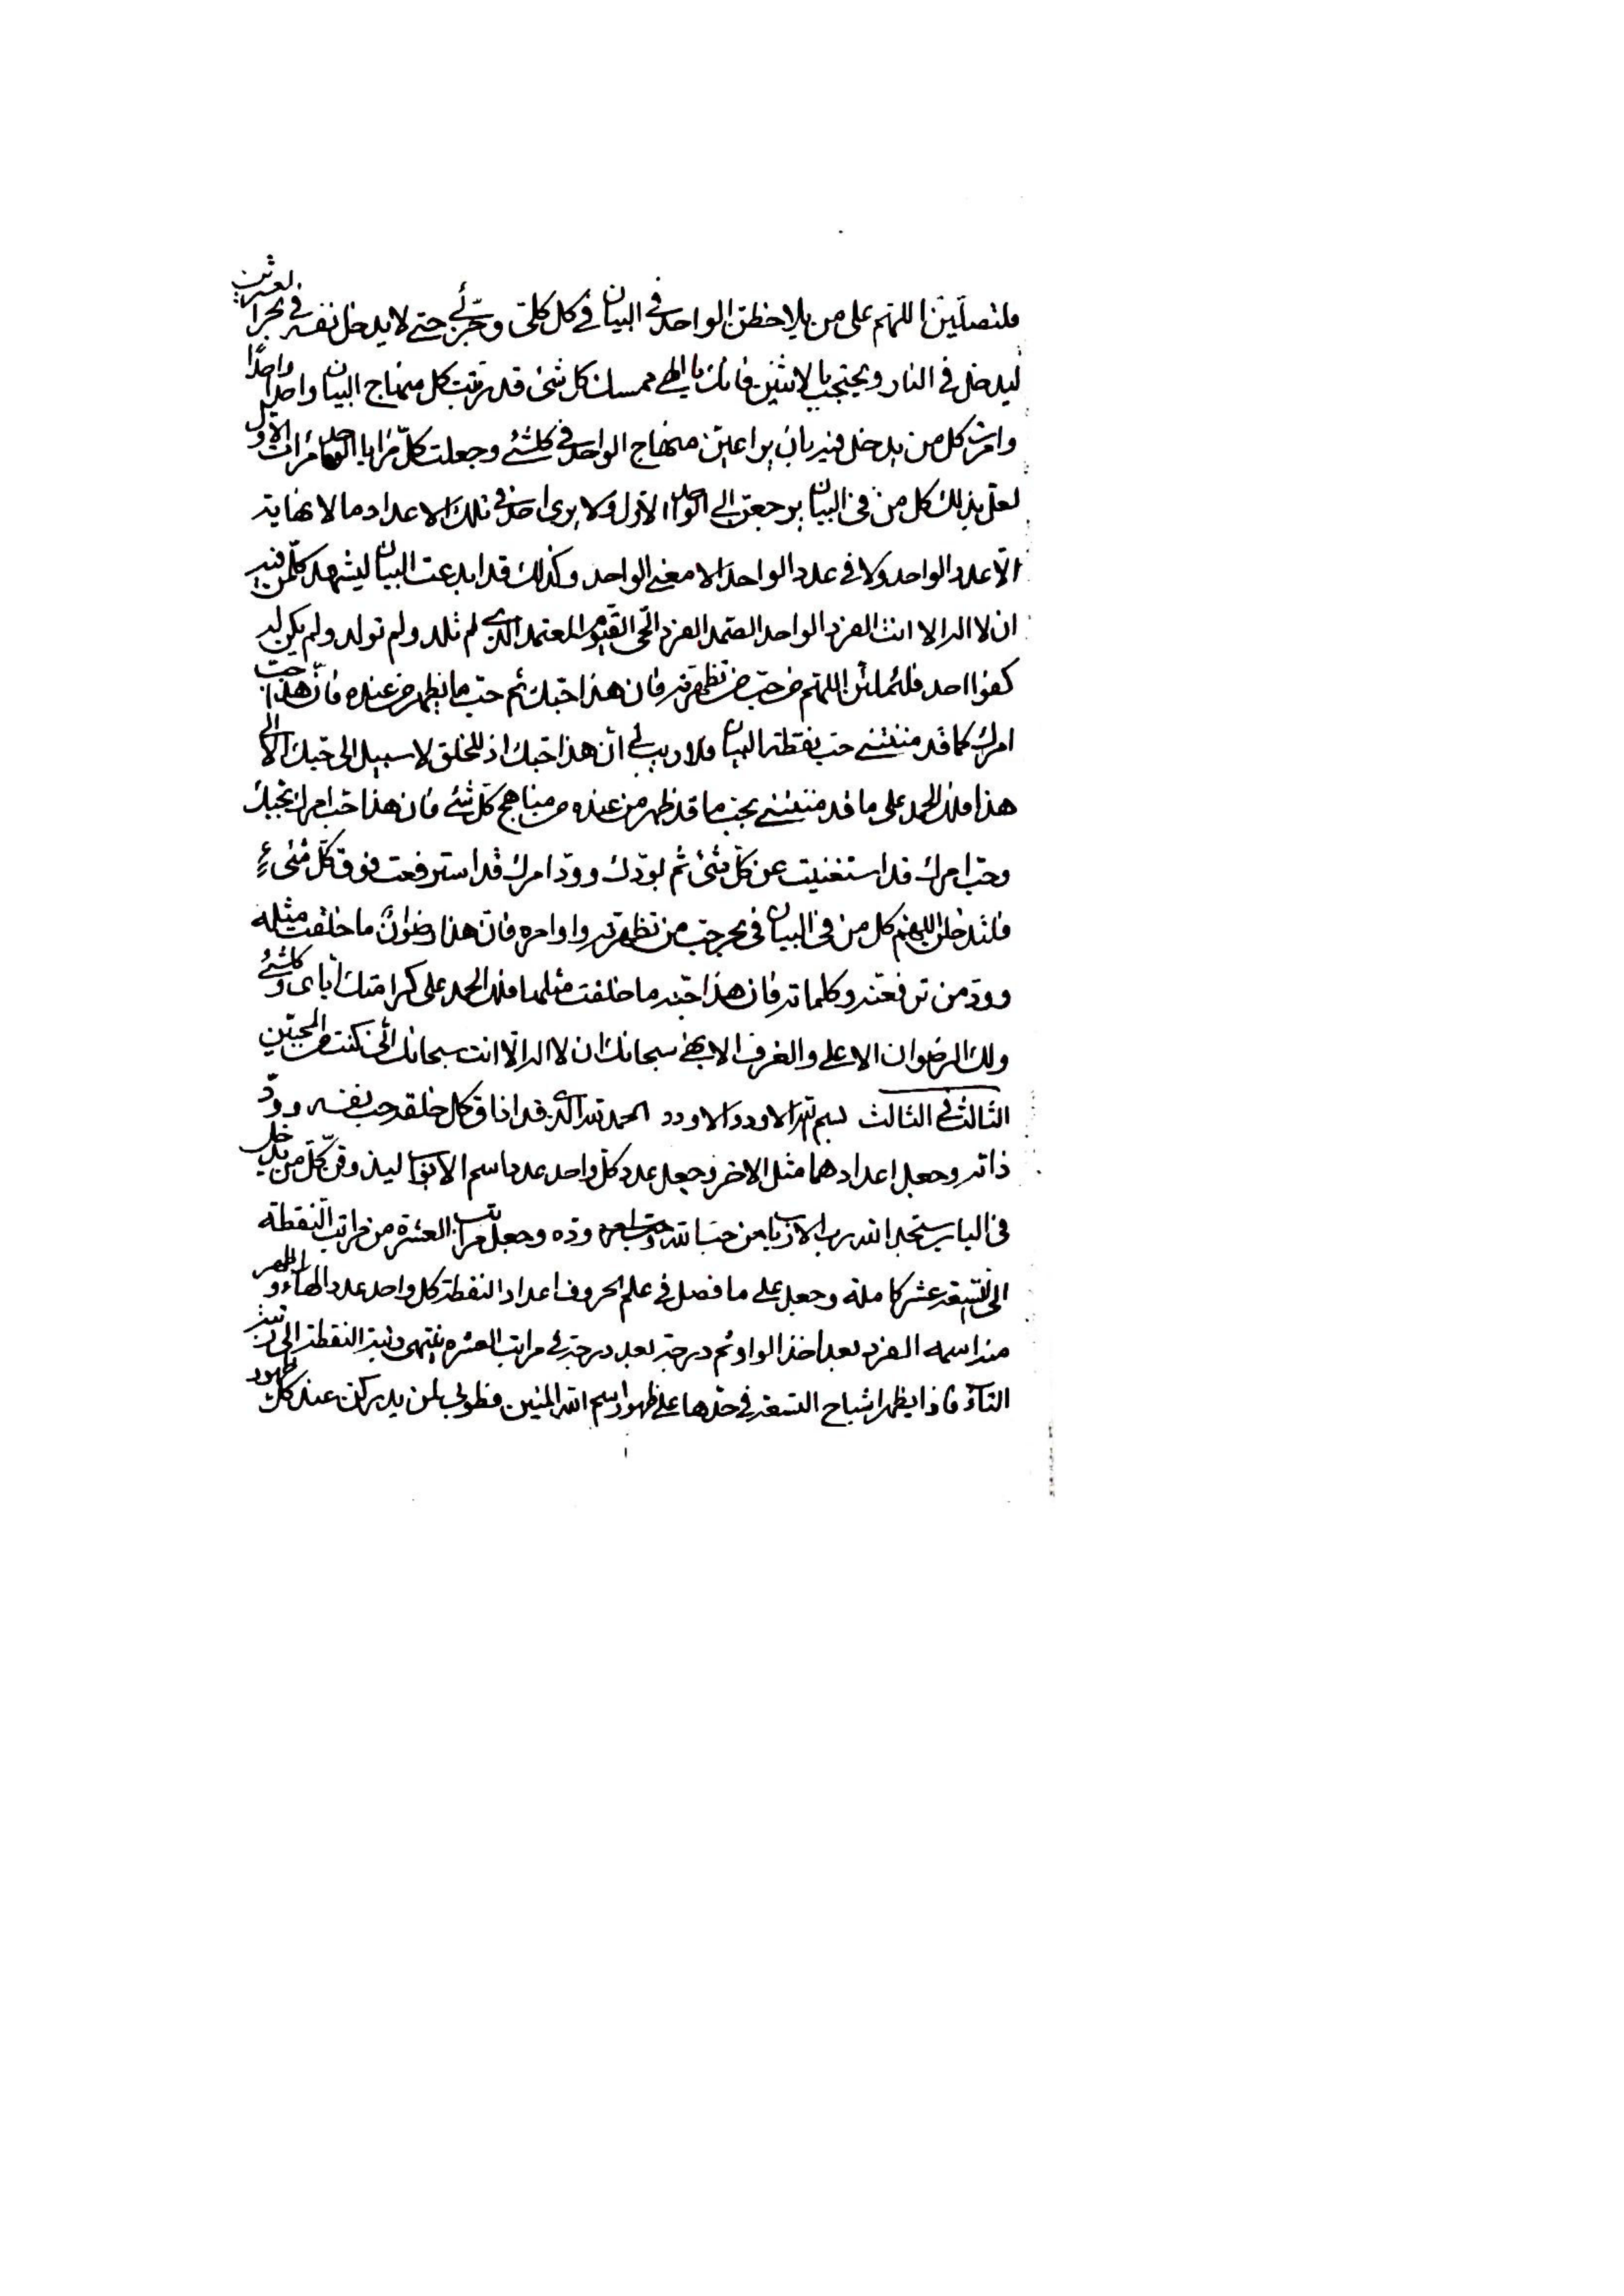 فلتصلّين اللهم على من يلاحظن الواحد في البيان في كل كلّي وجزئي حتى لا يدخل نفسه في بحر
ليدخل في النار ويحتجب بالاثنين فانك يا الهي ممسك كل شيء قد رتبت كل منهاج البيان واحدا واحدًا
وامرت كل من يدخل فيه بان يراعين منهاج الواحد في كلشيء وجعلت كلّ مرايا الواحد مرات الاول
لعل بذلك كل من في البيان يرجعن الى الواحد الاول ولا يرى احد في تلك الاعداد ما لا نهاية
الا عدد الواحد ولا في عدد الواحد الا معنى الواحد وكذلك قد ابدعت البيان ليشهد كلّمن فيه
ان لا اله الا انت الفرد الواحد الصمد الفرد الحّي القيّوم المعتمد الذي لم تلد ولم تولد ولم يكن له
كفوا احد فلتملئن اللهم من حبّ من تظهرنه فان هذا حبّك ثم حبّ ما يظهر من عنده فانّ هذا حبّ
امرك كما قد مننتني حب نقطة البيان فلا ريب لي انّ هذا حبّك اذ للخلق لا سبيل الى حبّك الا الى
هذا فلك الحمد على ما قد مننتني بحبّ ما قد ظهر من عنده من مناهج كلّ شيء فان هذا حب امرك بحبك
وحبّ امرك قد استغنيت عن كلّ شيء ثم بودّك وودّ امرك قد استرفعت فوق كلّ شيء
فلتدخلن اللهم كل من في البيان في بحر حبّ من تظهرنه واوامره فان هذا رضوان ما خلقت مثله
وودّ من ترفعنه وكلماته فان هذا جنّة ما خلقت مثلها فلك الحمد على كرامتك اياى وكلشيء
ولك الرضوان الاعلى والغرف الابهى سبحانك ان لا اله الّا انت سبحانك انّي كنت من المحبّين
الثالث في الثالث بسم الله الاودد الاودد الحمد لله الذي قد اذاق كل خلقه حب نفسه وودّ
ذاته وجعل اعدادهما مثل الاخر وجعل عدد كلّ واحد عدد اسم الابواب ليذوقنّ كلّ من يدخل
في الباب سجدا لله رب الارباب من حبّ الله وده وجعل مراتب العشرة من مراتب النقطة
الى التسعة عشر كاملة وجعل على ما فصل في علم الحروف اعداد النقطة كل واحد عدد الهاء و اظهر
منه اسمه الفرد بعد اخذ الواو ثم درجة بعد درجة في مراتب العشره ينتهي رتبة النقطة الى رتبة
التاء فاذا يظهر اشباح التسعة في حدّها على ظهور اسم الله المنين فطوبى لمن يدركن عند كل ظهور